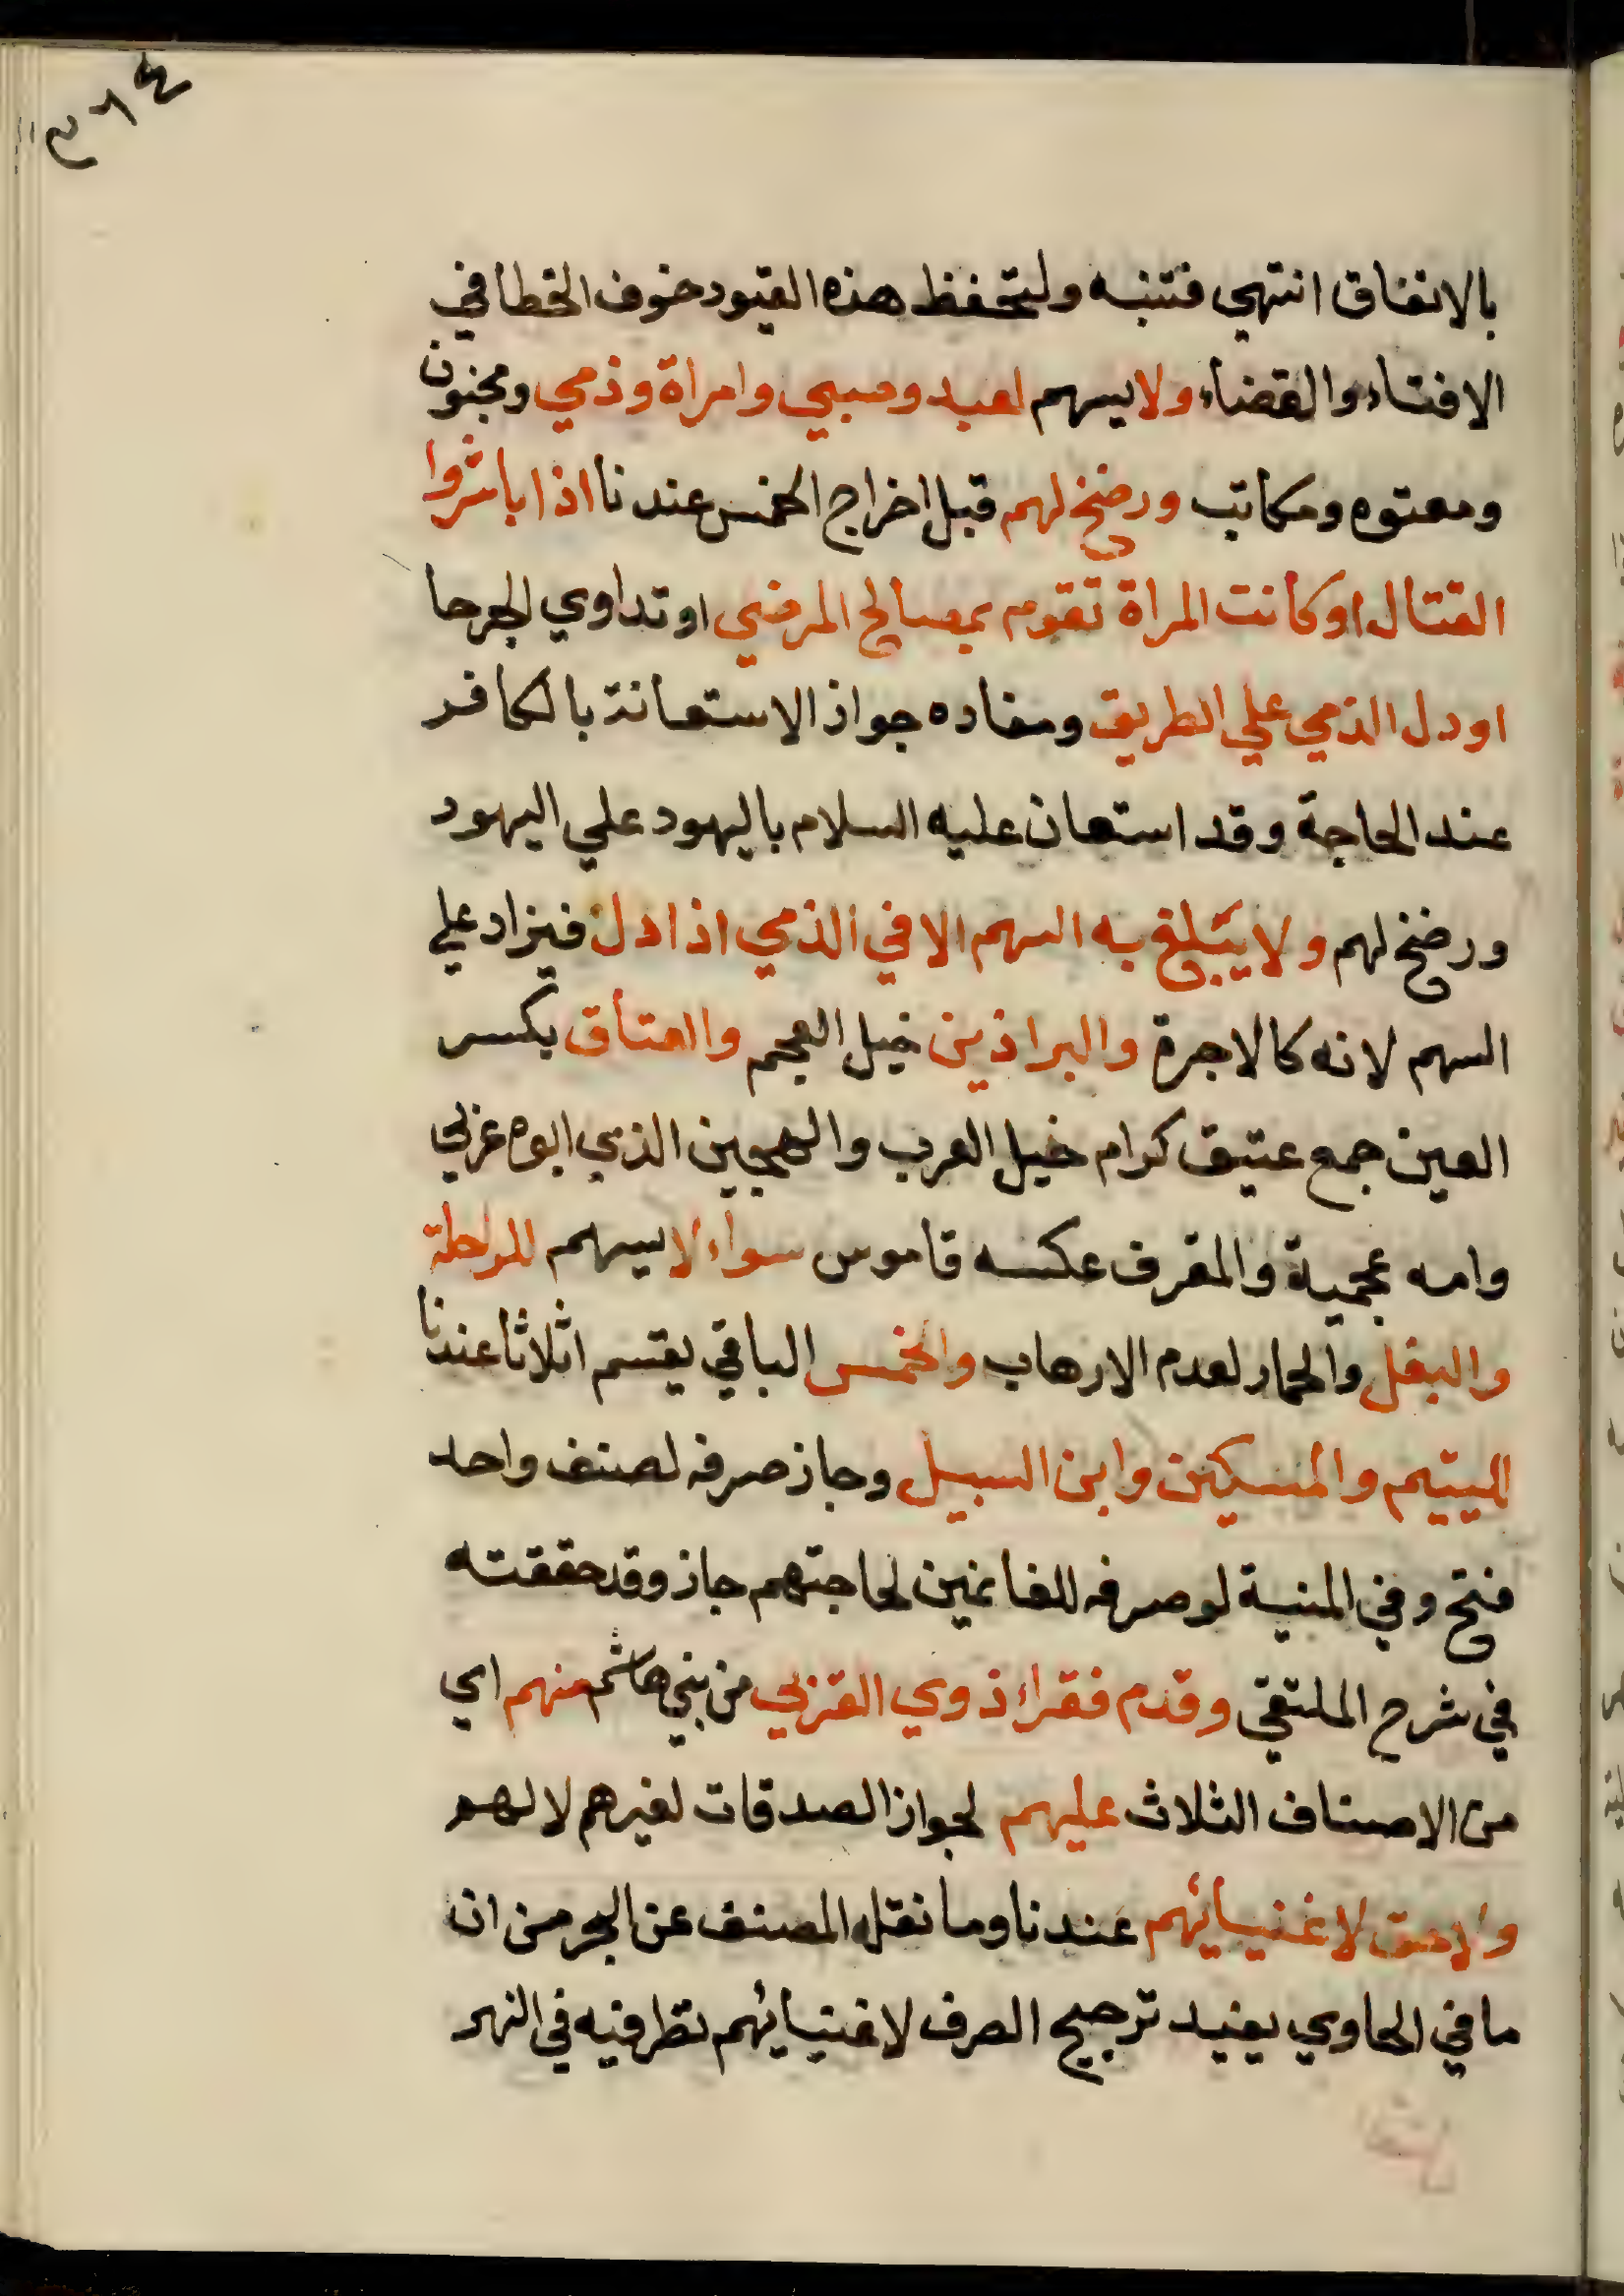 ٣٦٤
بالاتفاق انتهي فتنبه ولتحفظ هذه القيود خوف الخطا في
الافتاء والقضاء ولا يسهم لعبد وصبي وامراة وذمي ومجنون
ومعتوه ومكاتب ورضخ لهم قبل اخراج الخمس عندنا اذا باشروا
القتال او كانت المراة تقوم بمصالح المرضي او تداوي الجرحا
او دل الذمي علي الطريق ومفاده جواز الاستعانة بالكافر
عند الحاجة وقد استعان عليه السلام باليهود علي اليهود
ورضخ لهم ولا يبلغ به السهم الا في الذمي اذا دل فيزاد علي
السهم لانه كالاجرة والبراذين خيل العجم والعتاق بكسر
العين جمع عتيق كرام خيل العرب والهجين الذي ابوه عربي
وامه عجمية والمقرف عكسه قاموس سواء لا يسهم للراحلة
والبغل والحمار لعدم الارهاب والخمس الباقي يقسم اثلاثا عندنا
لليتيم والمسكين وابن السبيل وجاز صرفه لصنف واحد
فتح وفي المنية لو صرفه للغانمين لحاجتهم جاز وقد حققته
في شرح الملتقي وقدم فقراء ذوي القربي من بني هاشم منهم اي
من الاصناف الثلاث عليهم لجواز الصدقات لغيرهم لا لهم
ولا حق لاغنيائهم عندنا وما نقله المصنف عن البحر من ان
ما في الحاوي يفيد ترجيح الصرف لاغنيائهم نظر فيه في النهر